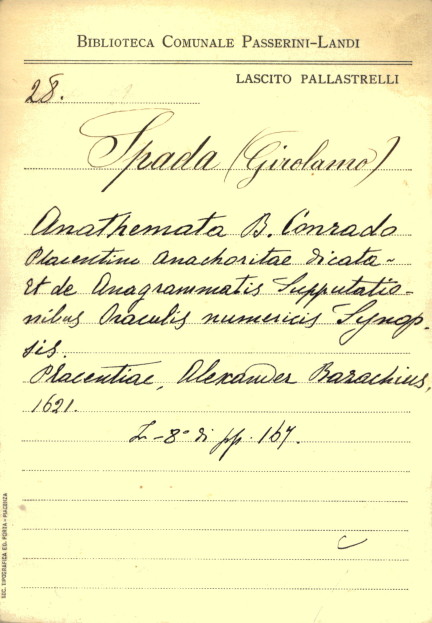 BIBLIOTECA COMUNALE PASSERINI-LANDI
LASCITO PALLASTRELLI
28.
Spada (Girolamo)
Anathemata B. Conrado
Placentino Anachoritae dicata-
Et de Anagrammatis Supputatio-
nibus Oraculis numericis Synop-
sis.
Placentiae, Alexander Barachius,
1621.
In-8° di pp. 167.
SOC. TIPOGRAFICA ED. PORTA - PIACENZA